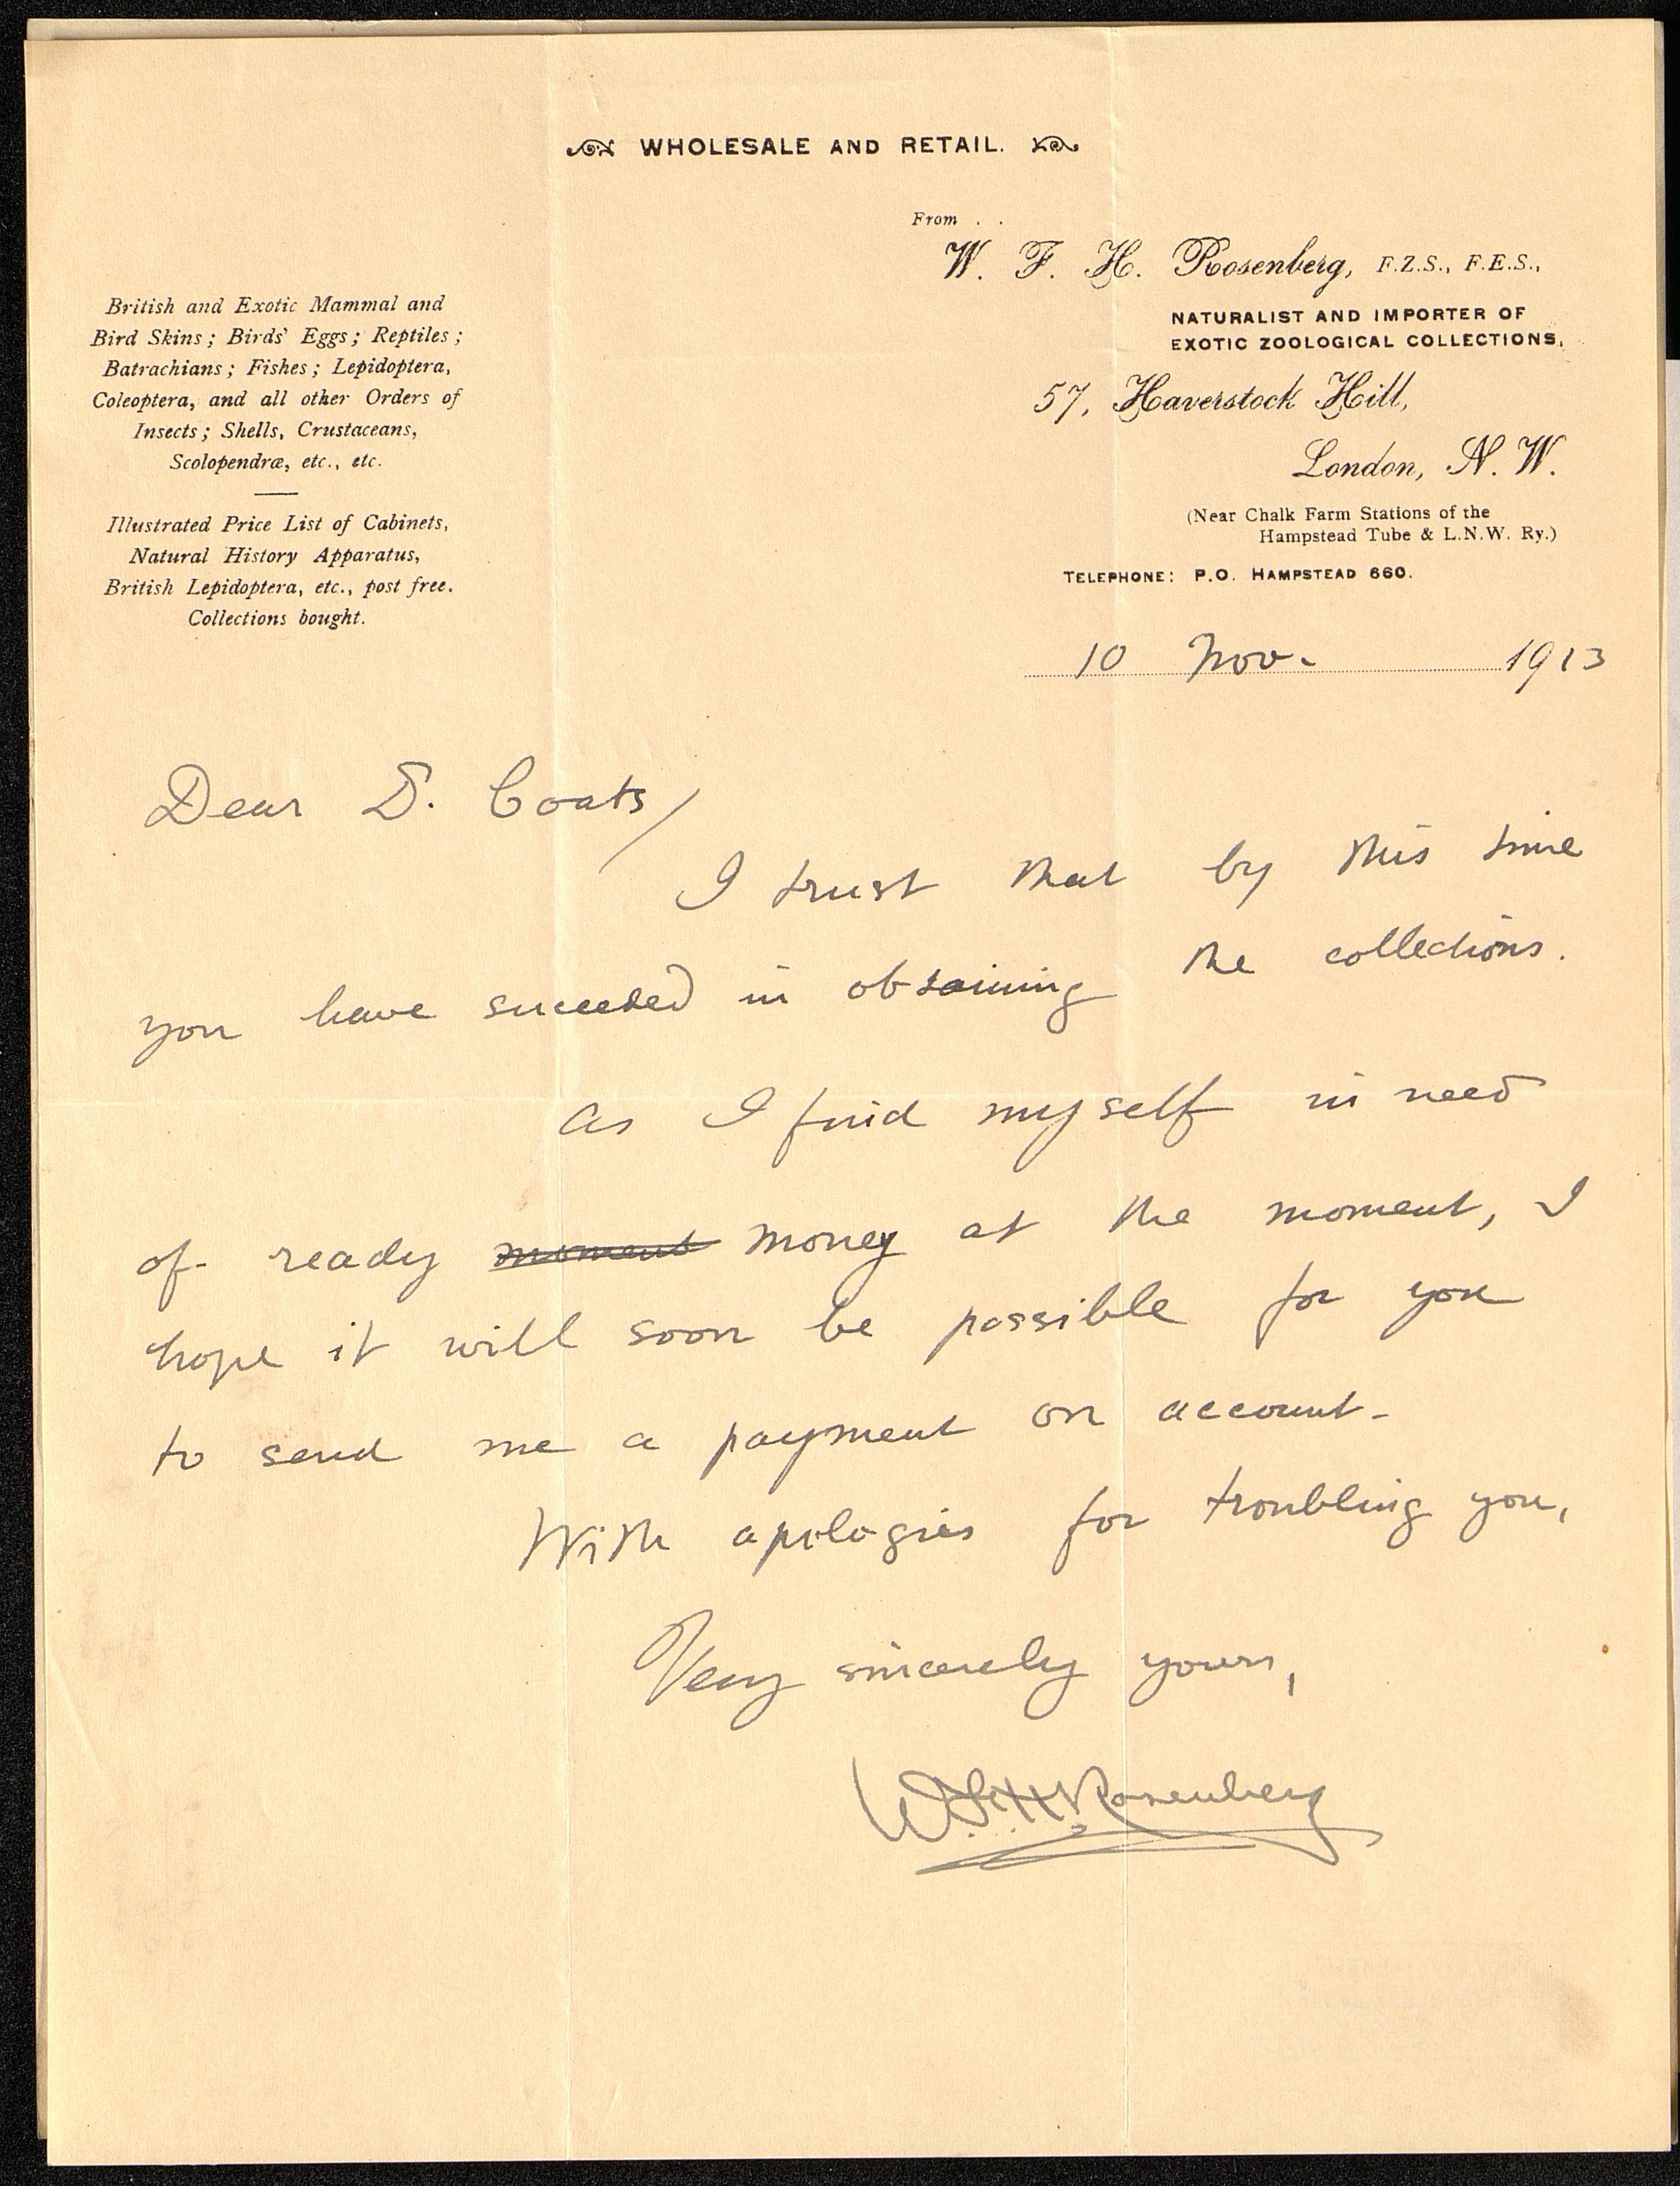 WHOLESALE AND RETAIL.
From . .
W. F. H. Rosenberg, F.Z.S., F.E.S.,
NATURALIST AND IMPORTER OF
EXOTIC ZOOLOGICAL COLLECTIONS,
57, Haverstock Hill,
London, N. W.
(Near Chalk Farm Stations of the
Hampstead Tube & L.N.W. Ry.)
TELEPHONE: P.O. HAMPSTEAD 660.
British and Exotic Mammal and
Bird Skins; Birds' Eggs; Reptiles;
Batrachians; Fishes; Lepidoptera,
Coleoptera, and all other Orders of
Insects; Shells, Crustaceans,
Scolopendræ, etc., etc.
Illustrated Price List of Cabinets,
Natural History Apparatus,
British Lepidoptera, etc., post free.
Collections bought.
10 Nov. 1913
Dear D. Coats/
I trust that by this time
you have succeeded in obtaining the collections.
As I find myself in need
of ready moment money at the moment, I
hope it will soon be possible for you
to send me a payment on account.
With apologies for troubling you,
Very sincerely yours,
W.F.H. Rosenberg